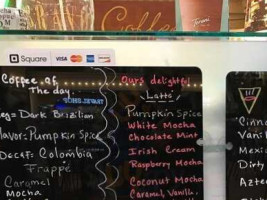 Coffee
Square
VISA
Coffee of
The day
Dark Brazilian
Pumpkin Spice
Decaf: Colombia
Frappé
Caramel
Mocha
Our delightful
Latté
Pumpkin Spice
White Mocha
Chocolate Mint
Irish Cream
Raspberry Mocha
Coconut Mocha
Caramel, Vanilla
Cinna
Vani
Mexi
Dirty
Aztec